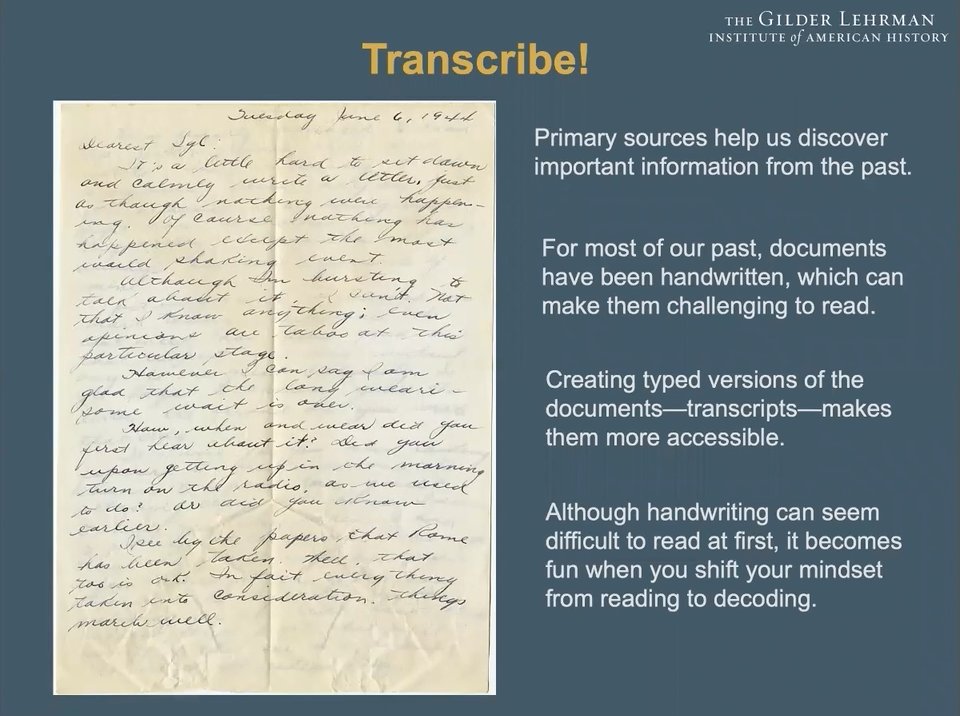 THE GILDER LEHRMAN
INSTITUTE of AMERICAN HISTORY
Transcribe!
Tuesday June 6, 1944
Dearest Syl:
It's a little hard to sit down
and calmly write a letter, just
as though nothing were happen-
ing. Of course nothing has
happened except the most
world shaking event.
Although I'm bursting to
talk about it, I can't. Not
that I know anything; even
opinions are taboo at this
particular stage.
However I can say I am
glad that the long weari-
some wait is over.
How, when and wear did you
first hear about it? Did you
upon getting up in the morning
turn on the radio, as we used
to do? Or did you know
earlier.
I see by the papers, that Rome
has been taken. Well, that
too is o.k. In fact, everything
taken into consideration, things
march well.
Primary sources help us discover
important information from the past.
For most of our past, documents
have been handwritten, which can
make them challenging to read.
Creating typed versions of the
documents—transcripts—makes
them more accessible.
Although handwriting can seem
difficult to read at first, it becomes
fun when you shift your mindset
from reading to decoding.